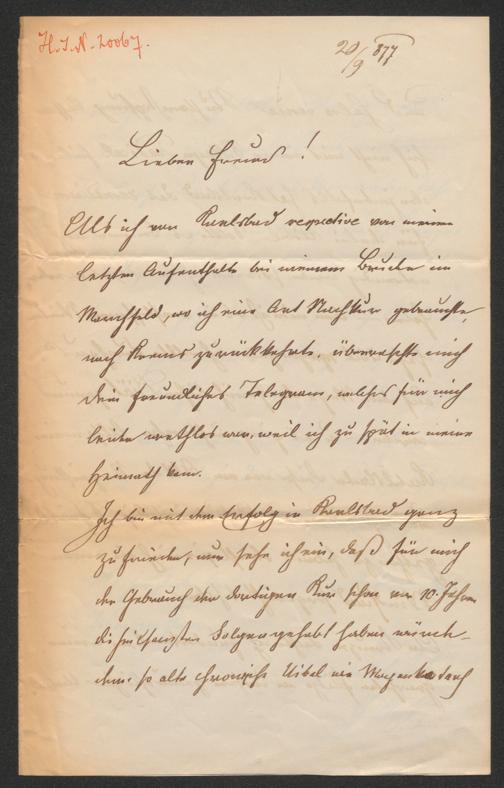 H.I.N.-20067.
20/9 877
Lieber Freund!
Als ich von Karlsbad respective von meinem
letzten Aufenthalte bei meinem Bruder im
Marchfeld, wo ich eine Art Nachkur gebrauchte,
nach Krems zurückkehrte, überraschte mich
Dein freundliches Telegram, welches für mich
leider werthlos war, weil ich zu spät in meine
Heimath kam.
Ich bin mit dem Erfolg in Karlsbad ganz
zufrieden, nur sehe ich ein, daß für mich
der Gebrauch der dortigen Kur schon vor 10 Jahren
die heilsamsten Folgen gehabt haben würde,
denn so alte chronische Uibel wie Magenkatarrh